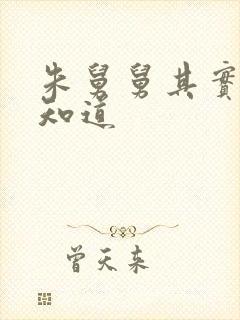 朱舅舅其實
知道
曾天来